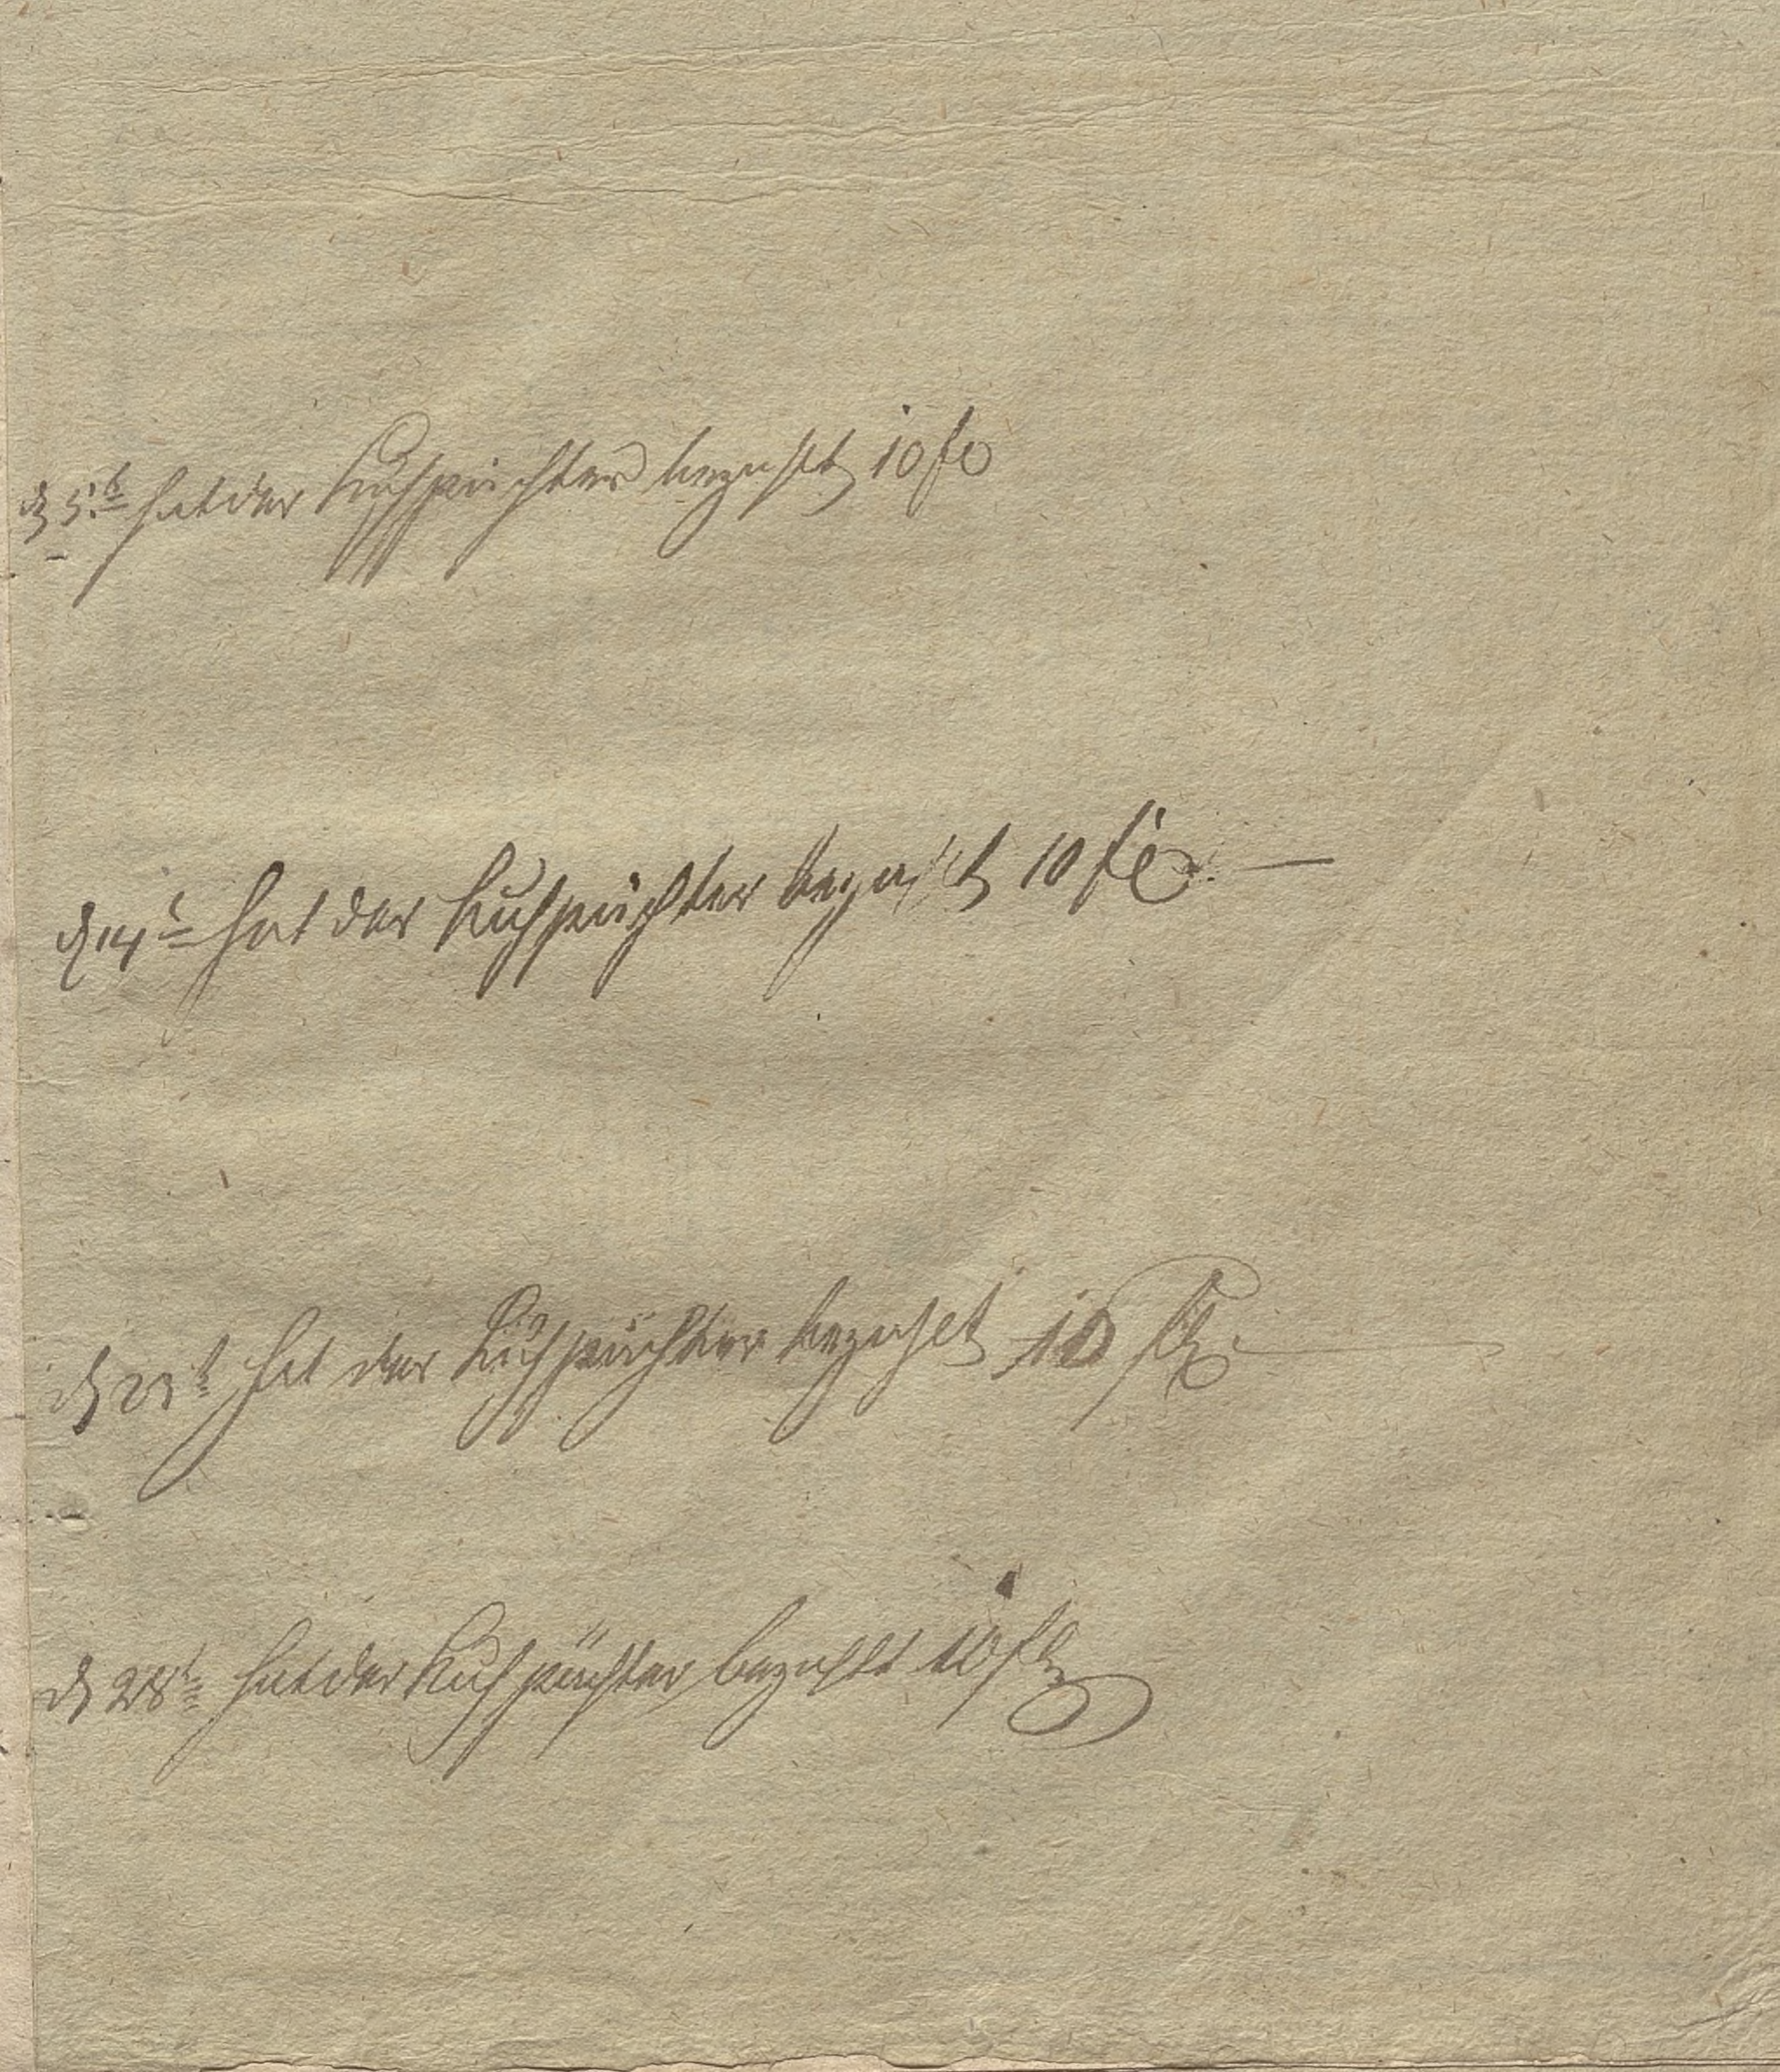 d 5t hat der Kuhpächter bezahlt 10 fl
d 14t hat der Kuhpächter bezahlt 10 fl
d 23t hat der Kuhpächter bezahlet 10 fl
d 28t hat der Kuhpächter bezahlt 10 fl